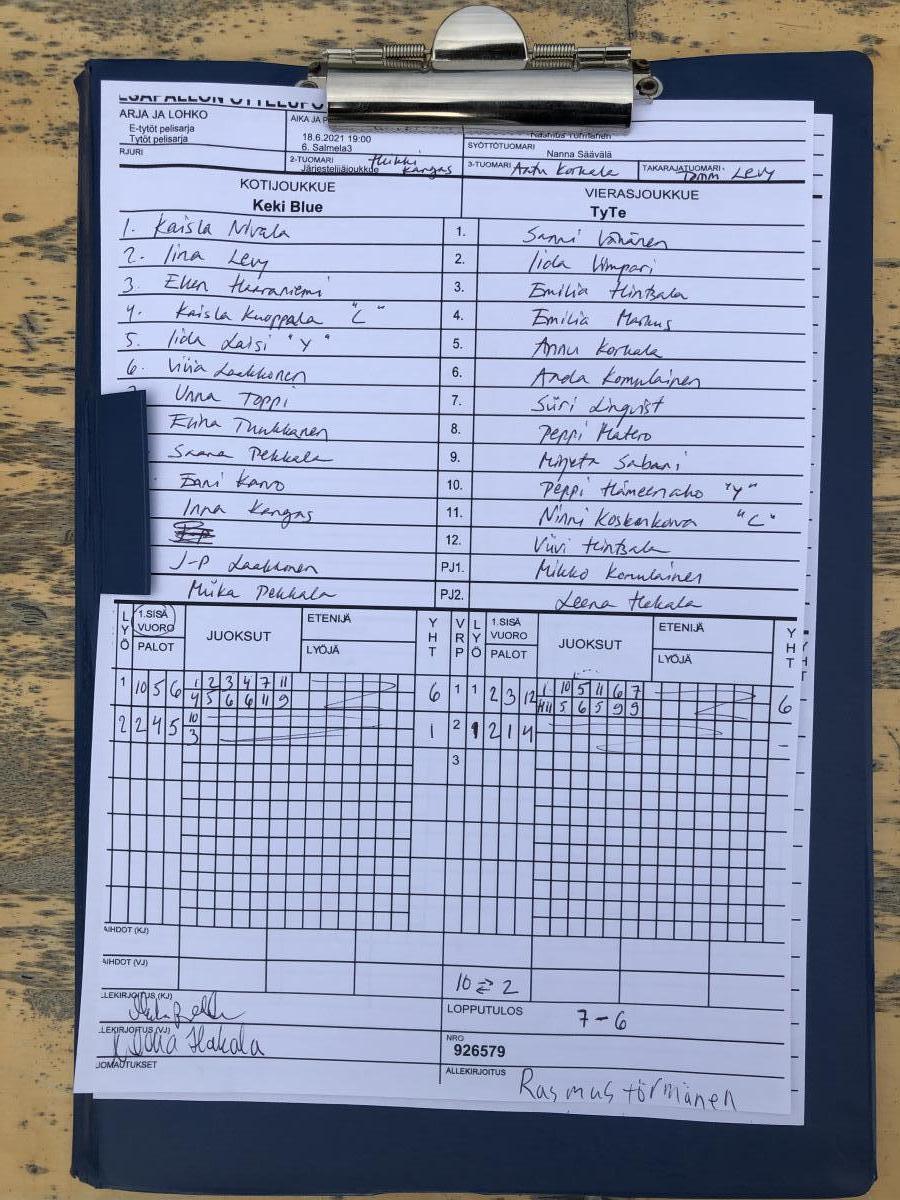 ARJA JA LOHKO
E-tytöt pelisarja
Tytöt pelisarja
AIKA JA P
18.6.2021 19:00
6. Salmela3
SYÖTTÖTUOMARI
Nanna Säävälä
RJURI
2-TUOMARI Heikki
Järjestelijäjoukkue Kangas
3-TUOMARI Antu Korkala
TAKARAJATUOMARI
Tommi Levy
KOTIJOUKKUE
Keki Blue
VIERASJOUKKUE
TyTe
1. Kaisla Nivala
1. Sanni Vähänen
2. Iina Levy
2. Iida Vimpari
3. Ellen Haaraniemi
3. Emilia Hintsala
4. Kaisla Knoppala "C"
4. Emilia Markus
5. Iida Laisi "Y"
5. Annu Korkala
6. Viia Laakkonen
6. Anda Komulainen
Unna Toppi
7. Siiri Linqvist
Elina Tuukkanen
8. Peppi Matero
Saana Pekkala
9. Sabani
Karvo
10. Peppi Hämeenaho "Y"
Inna Kangas
11. Ninni Koskenkorva "C"
12. Viivi Hintsala
J-P Laakkonen
PJ1. Mikko Komulainen
Miika Pekkala
PJ2. Leena Hakala
LYÖ
1.SISÄ
VUORO
PALOT
JUOKSUT
ETENIJÄ
LYÖJÄ
YHT
VRP
LYÖ
1.SISÄ
VUORO
PALOT
JUOKSUT
ETENIJÄ
LYÖJÄ
YHT
1 10 5 6 1 2 3 4 7 11 6 1 1 2 3 12 1 10 5 11 6 7 6
4 5 6 6 11 9 5 6 5 9 9
2 2 4 5 10 1 2 1 2 1 4 -
3
3
AIHDOT (KJ)
AIHDOT (VJ)
10 ⇄ 2
LLEKIRJOITUS (KJ)
LOPPUTULOS 7-6
LLEKIRJOITUS (VJ)
Hakala
NRO
926579
UOMAUTUKSET
ALLEKIRJOITUS Rasmus törmänen